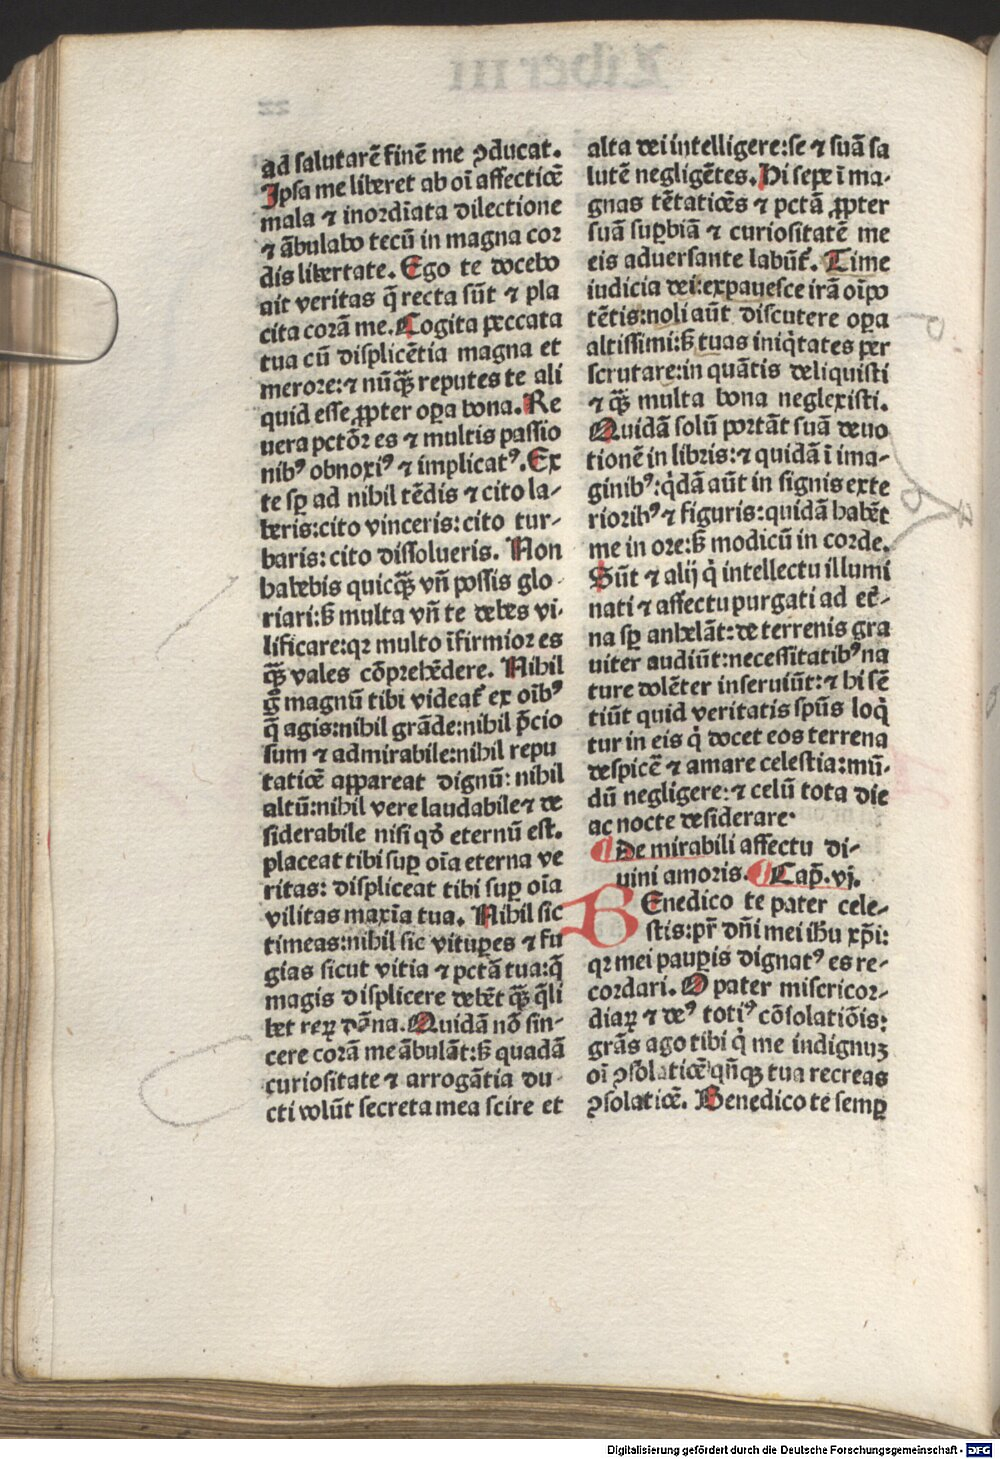 ad salutarē finē me ꝓducat.
Ipsa me liberet ab oī affectiōe
mala ⁊ inordīata dilectione
⁊ ābulabo tecū in magna cor
dis libertate. Ego te docebo
ait veritas q̄ recta sūt ⁊ pla
cita corā me. Cogita peccata
tua cū displicētia magna et
merore:⁊ nūqꝫ̄ reputes te ali
quid esse ꝓpter oꝑa bona. Re
uera pctōr es ⁊ multis passio
nibꝰ obnoxiꝰ ⁊ implicatꝰ. Ex
te sꝑ ad nihil tēdis ⁊ cito la-
beris:cito vinceris: cito tur-
baris: cito dissolueris. Non
habebis quicqꝫ̄ vñ possis glo-
riari:sꝫ multa vñ te debes vi-
lificare:qꝛ multo īfirmior es
qꝫ̄ vales cōprehēdere. Nihil
gͦ magnū tibi videat̄ ex oībꝰ
q̄ agis:nihil grāde:nihil p̄cio
sum ⁊ admirabile:nihil repu
tatiōe appareat dignū: nihil
altū:nihil vere laudabile ⁊ de
siderabile nisi qd̄ eternū est.
placeat tibi suꝑ oīa eterna ve
ritas: displiceat tibi suꝑ oīa
vilitas maxīa tua. Nihil sic
timeas:nihil sic vituꝑes ⁊ fu
gias sicut vitia ⁊ pctā tua:q̄
magis displicere debēt qꝫ̄ q̄li
bet reꝝ dāna. Quidā nō sin-
cere corā me ābulāt:sꝫ quadā
curiositate ⁊ arrogātia du-
cti volūt secreta mea scire et
alta dei intelligere:se ⁊ suā sa
lutē negligētes. Hi sepe ī ma-
gnas tētatiōes ⁊ pctā ꝓpter
suā suꝑbiā ⁊ curiositatē me
eis aduersante labūt̄. Time
iudicia dei:expauesce irā oīpo
tētis:noli aūt discutere oꝑa
altissimi:sꝫ tuas iniq̇tates per
scrutare:in quātis deliquisti
⁊ qꝫ̄ multa bona neglexisti.
Quidā solū portāt suā deuo
tionē in libris:⁊ quidā ī ima-
ginibꝰ:q̇dā aūt in signis exte
rioribꝰ ⁊ figuris:quidā habēt
me in ore:sꝫ modicū in corde.
Sūt ⁊ alij q̇ intellectu illumi
nati ⁊ affectu purgati ad et̄-
na sꝑ anhelāt:de terrenis gra
uiter audiūt:necessitatibꝰ na
ture dolēter inseruiūt:⁊ hi sē
tiūt quid veritatis spūs loq̇
tur in eis q̇ docet eos terrena
despicē ⁊ amare celestia:mū-
dū negligere:⁊ celū tota die
ac nocte desiderare.
¶ De mirabili affectu di-
uini amoris. ¶ Cap̄. vj.
BEnedico te pater cele-
stis:pr̄ dñi mei ihu xp̄i:
qꝛ mei pauꝑis dignatꝰ es re-
cordari. O pater misericor-
diaꝝ ⁊ deꝰ totiꝰ cōsolatiōis:
grās ago tibi q̇ me indignuꝫ
oī ꝯsolatiōe qn̄qꝫ tua recreas
ꝯsolatiōe. Benedico te semꝑ
Digitalisierung gefördert durch die Deutsche Forschungsgemeinschaft - DFG